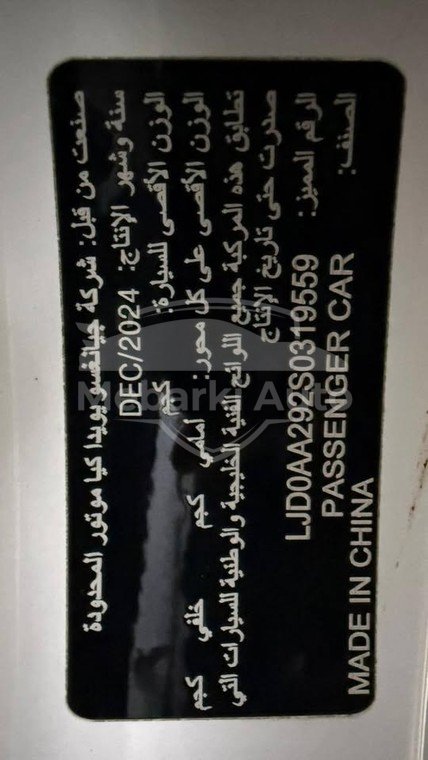 صنعت من قبل: شركة جيانغسو يويدا كيا موتور المحدودة
سنة وشهر الإنتاج: DEC/2024
الوزن الأقصى للسيارة: كجم
الوزن الأقصى على كل محور: أمامي كجم خلفي كجم
تطابق هذه المركبة جميع اللوائح الفنية الخليجية والوطنية للسيارات التي
صدرت حتى تاريخ الإنتاج
الرقم المميز: LJD0AA292S0319559
الصنف: PASSENGER CAR
MADE IN CHINA
Mobarki Auto